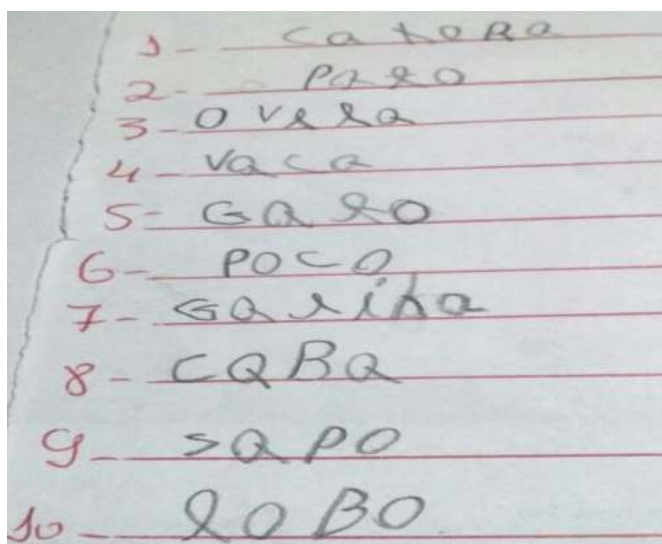 1-
2- Palo
3- ovela
4- vaca
5- Galo
6- POCO
7- Galiha
8- CaBa
9- saPO
10- loBO